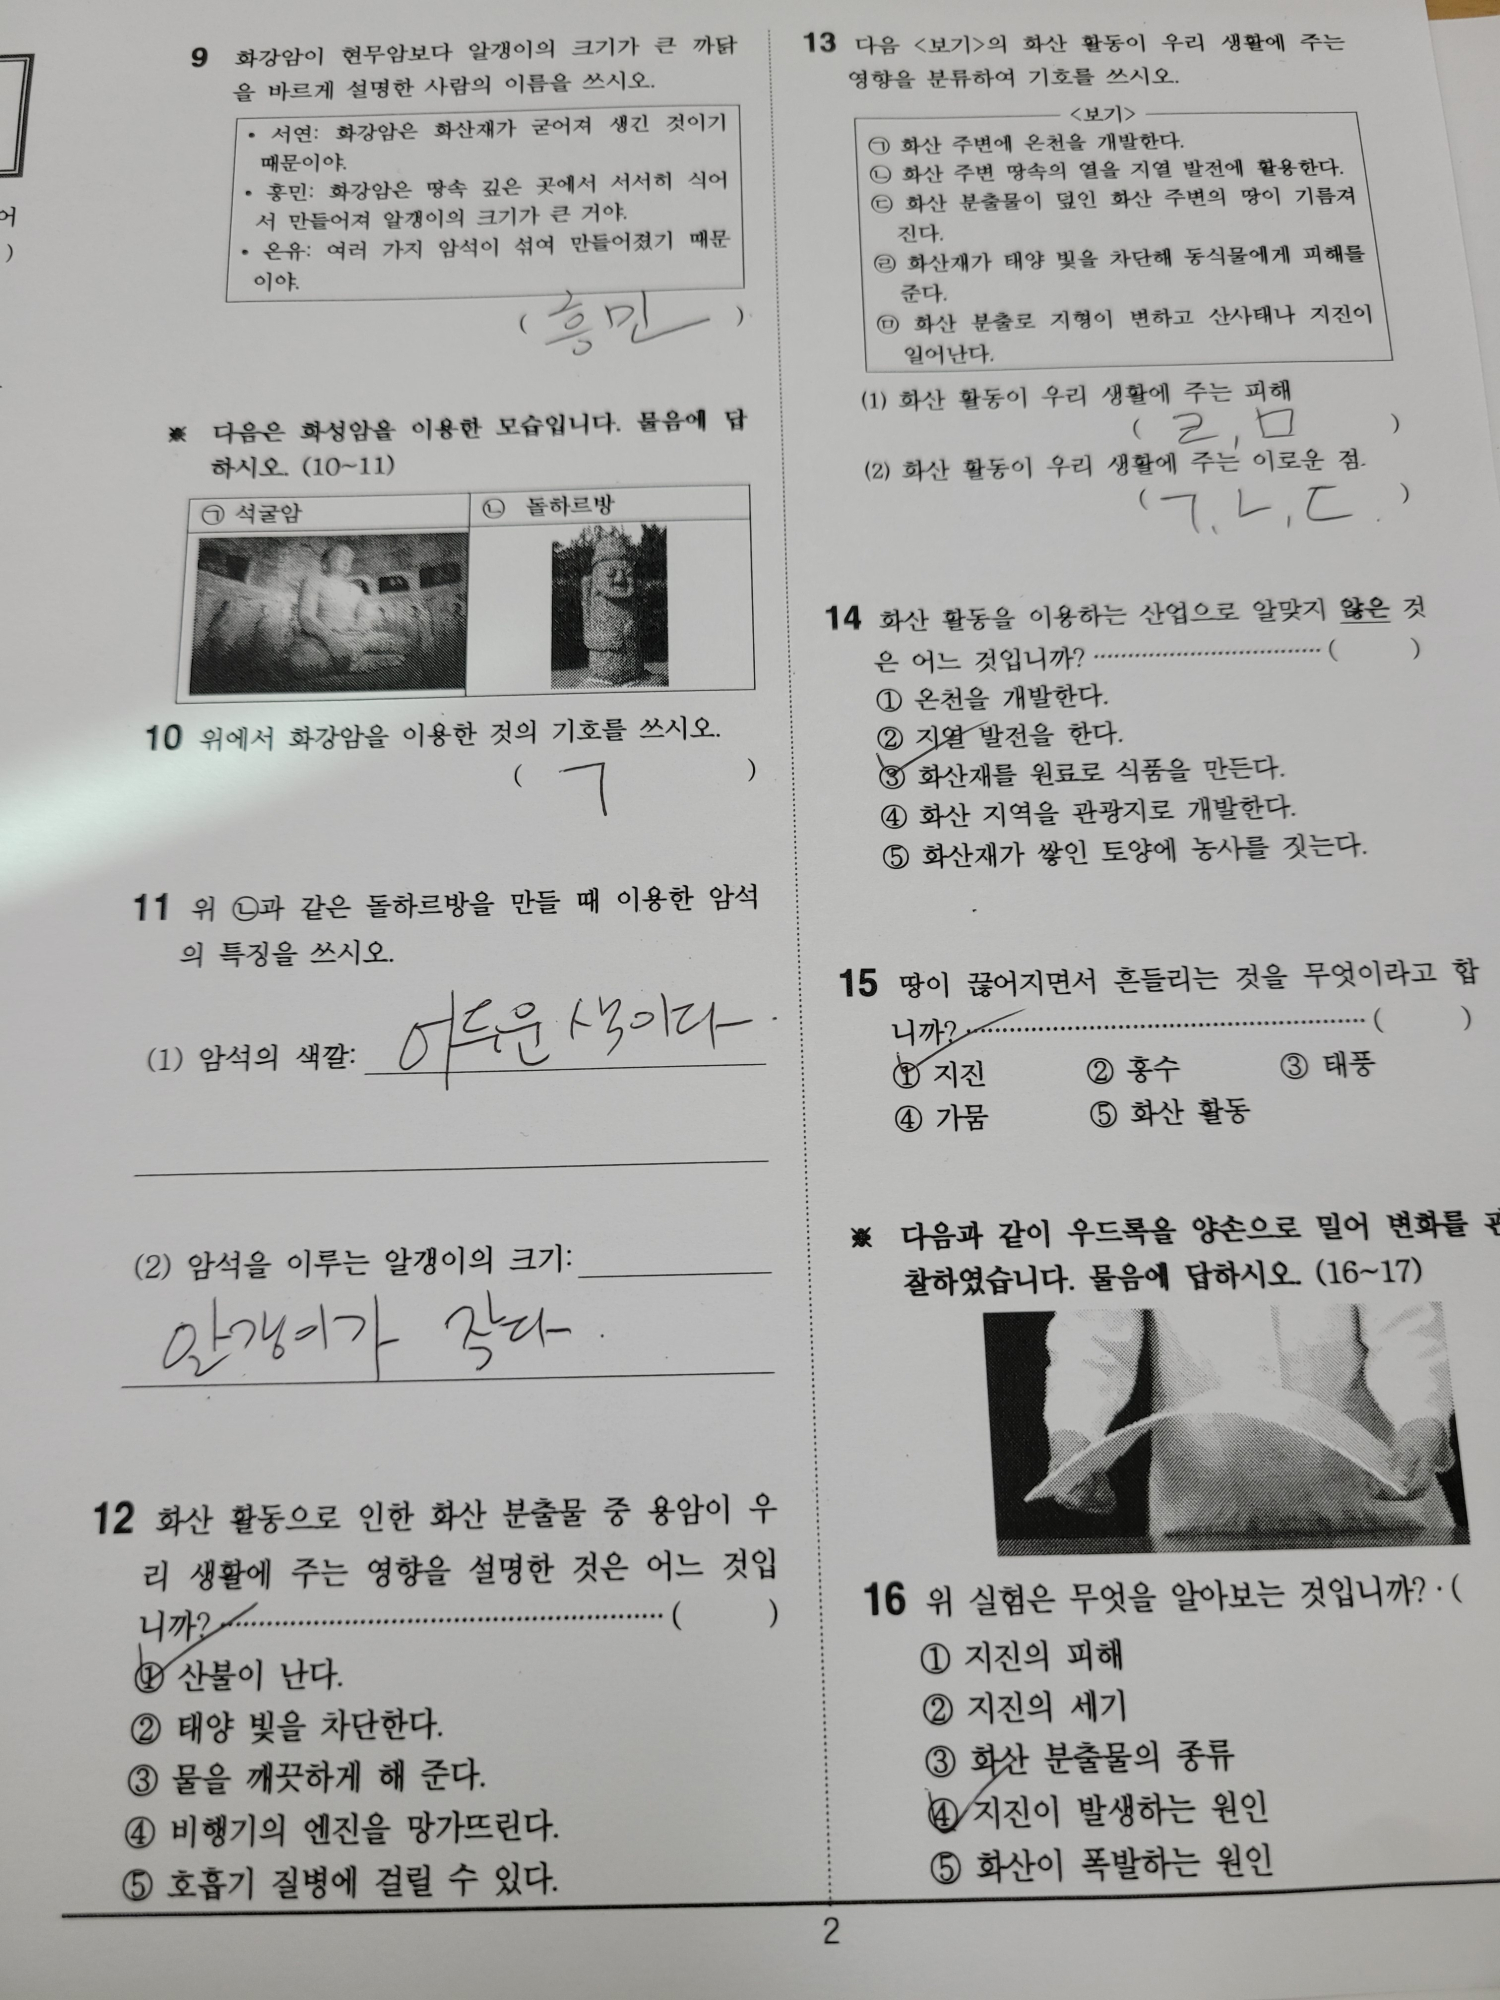 어
)
9 화강암이 현무암보다 알갱이의 크기가 큰 까닭
을 바르게 설명한 사람의 이름을 쓰시오.
• 서연: 화강암은 화산재가 굳어져 생긴 것이기
때문이야.
• 흥민: 화강암은 땅속 깊은 곳에서 서서히 식어
서 만들어져 알갱이의 크기가 큰 거야.
• 온유: 여러 가지 암석이 섞여 만들어졌기 때문
이야.
( 흥민 )
※ 다음은 화성암을 이용한 모습입니다. 물음에 답
하시오. (10~11)
㉠ 석굴암 ㉡ 돌하르방
10 위에서 화강암을 이용한 것의 기호를 쓰시오.
( ㄱ )
11 위 ㉡과 같은 돌하르방을 만들 때 이용한 암석
의 특징을 쓰시오.
(1) 암석의 색깔: 어두운 색이다.
(2) 암석을 이루는 알갱이의 크기:
알갱이가 작다.
12 화산 활동으로 인한 화산 분출물 중 용암이 우
리 생활에 주는 영향을 설명한 것은 어느 것입
니까? ( )
① 산불이 난다.
② 태양 빛을 차단한다.
③ 물을 깨끗하게 해 준다.
④ 비행기의 엔진을 망가뜨린다.
⑤ 호흡기 질병에 걸릴 수 있다.
13 다음 <보기>의 화산 활동이 우리 생활에 주는
영향을 분류하여 기호를 쓰시오.
<보기>
㉠ 화산 주변에 온천을 개발한다.
㉡ 화산 주변 땅속의 열을 지열 발전에 활용한다.
㉢ 화산 분출물이 덮인 화산 주변의 땅이 기름져
진다.
㉣ 화산재가 태양 빛을 차단해 동식물에게 피해를
준다.
㉤ 화산 분출로 지형이 변하고 산사태나 지진이
일어난다.
(1) 화산 활동이 우리 생활에 주는 피해
( ㄹ, ㅁ )
(2) 화산 활동이 우리 생활에 주는 이로운 점.
( ㄱ, ㄴ, ㄷ. )
14 화산 활동을 이용하는 산업으로 알맞지 않은 것
은 어느 것입니까? ( )
① 온천을 개발한다.
② 지열 발전을 한다.
③ 화산재를 원료로 식품을 만든다.
④ 화산 지역을 관광지로 개발한다.
⑤ 화산재가 쌓인 토양에 농사를 짓는다.
15 땅이 끊어지면서 흔들리는 것을 무엇이라고 합
니까? ( )
① 지진 ② 홍수 ③ 태풍
④ 가뭄 ⑤ 화산 활동
※ 다음과 같이 우드록을 양손으로 밀어 변화를 관
찰하였습니다. 물음에 답하시오. (16~17)
16 위 실험은 무엇을 알아보는 것입니까? · (
① 지진의 피해
② 지진의 세기
③ 화산 분출물의 종류
④ 지진이 발생하는 원인
⑤ 화산이 폭발하는 원인
2